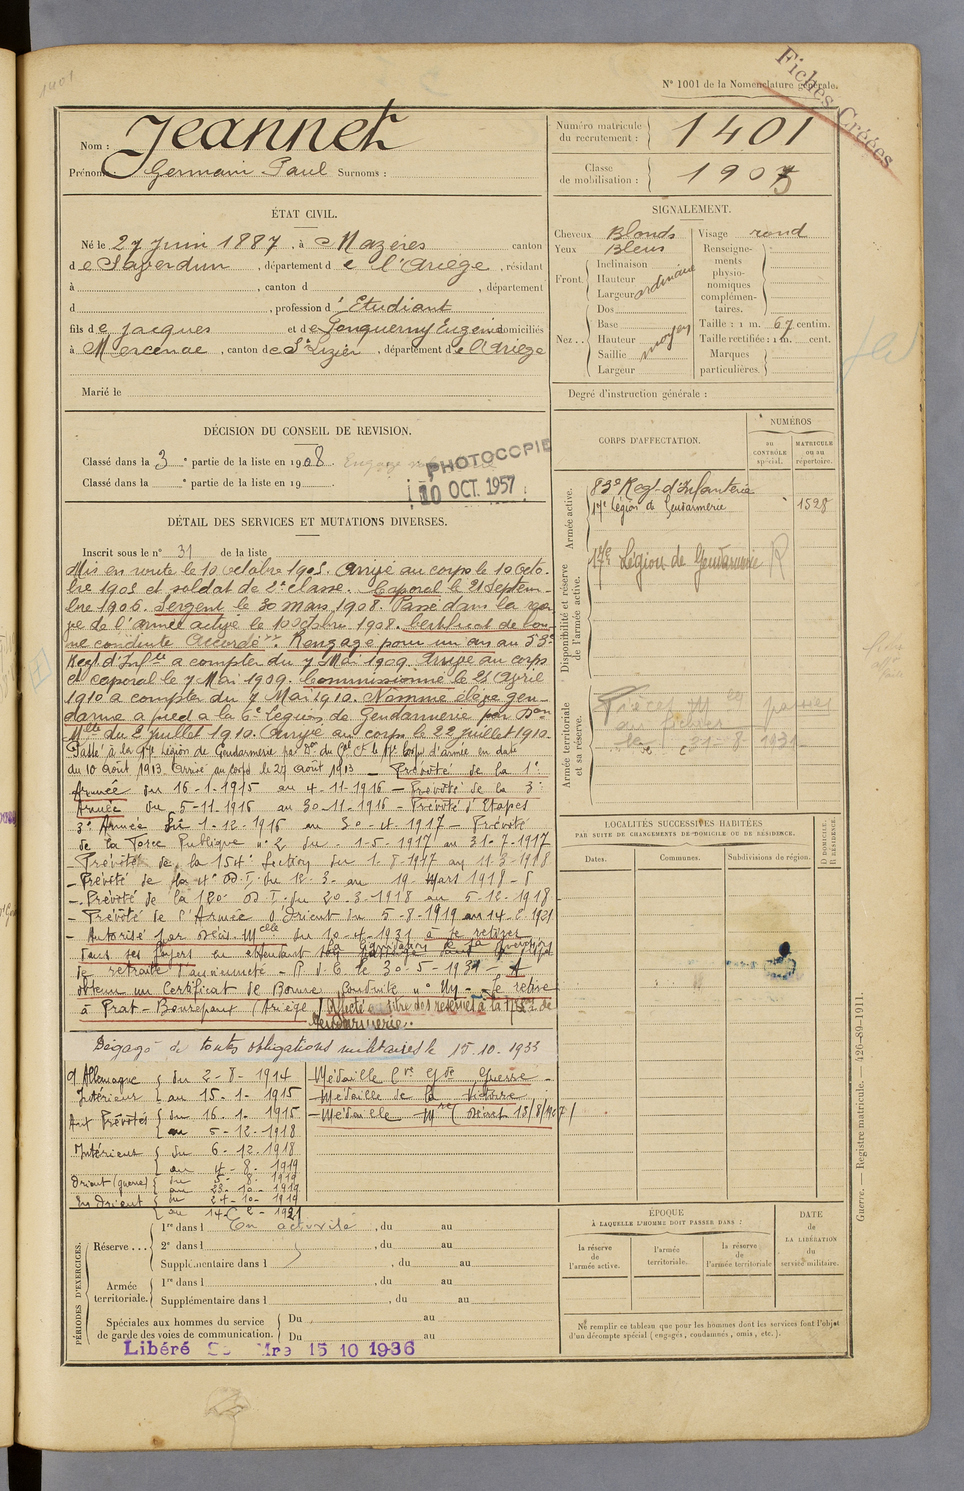 1401
N° 1001 de la Nomenclature générale.
Fiches Créées
Nom : Jeannet
Prénoms Germain Paul Surnoms :
Numéro matricule du recrutement : 1401
Classe de mobilisation : 1905
ÉTAT CIVIL.
Né le 27 Juin 1887, à Mazères canton
de Saverdun, département de l'Ariège, résidant
à , canton d , département
d , profession d'Etudiant
fils de Jacques et de Eugénie domiciliés
à Mercenac, canton de St Lizier, département de l'Ariège
Marié le
SIGNALEMENT.
Cheveux Blonds Visage rond
Yeux Bleus
Renseignements physionomiques complémentaires.
Front. Inclinaison
Hauteur ordinaire
Largeur
Nez.. Dos
Base
Hauteur moyen
Saillie
Largeur
Taille : 1 m. 67 centim.
Taille rectifiée : 1 m. cent.
Marques particulières.
Degré d'instruction générale :
DÉCISION DU CONSEIL DE REVISION.
Classé dans la 3e partie de la liste en 1908.
Classé dans la e partie de la liste en 19 .
PHOTOCOPIE
10 OCT. 1957
DÉTAIL DES SERVICES ET MUTATIONS DIVERSES.
Inscrit sous le n° 31 de la liste
Mis en route le 10 octobre 1905. Arrivé au corps le 10 octo-
bre 1905 et soldat de 2e classe. Caporal le 21 Septem-
bre 1906. Sergent le 30 mars 1908. Passé dans la réser-
ve de l'armée active le 1er octobre 1908. Certificat de bon-
ne conduite Accordé. Rengagé pour un an au 83e
Regt d'Inf.ie à compter du 7 Mai 1909. Arrivé au corps
et caporal le 7 Mai 1909. Commissionné le 21 Avril
1910 à compter du 7 Mai 1910. Nommé élève gen-
darme à pied à la 6e légion de Gendarmerie par Don
Mlle du 2 juillet 1910. Arrivé au corps le 22 juillet 1910.
Passé à la 17e Légion de Gendarmerie par Don du Gal Ct le 17e Corps d'armée en date
du 10 août 1913 Arrivé au corps le 27 août 1913 – Prévôté de la 1e
Armée du 16-1-1915 au 4-11-1916 – Prévôté de la 3e
Armée du 5-11-1916 au 30-11-1916 – Prévôté d'Etapes
3e Armée du 1-12-1916 au 30-4-1917 – Prévôté
de la Force Publique n° 2 du 1-5-1917 au 31-7-1917
– Prévôté de la 154e Section du 1-8-1917 au 11-3-1918
– Prévôté de la 4e D.I. du 12-3- au 19-Mars 1918
– Prévôté de la 120e D.I. du 20-3-1918 au 5-12-1918
– Prévôté de l'Armée d'Orient du 5-8-1919 au 14-2-1921
– Autorisé par Décis. Mlle du 10-4-1931 à se retirer
dans ses foyers en attendant la liquidation de sa pension
de retraite d'ancienneté – R d. C le 30-5-1931 – A
obtenu un Certificat de Bonne Conduite – Se retire
à Prat-Bonrepaux (Ariège) Affecté au titre des réserves à la 17e L. de
Gendarmerie.
Dégagé de toutes obligations militaires le 15.10.1933
Ct Allemagne
Intérieur { du 2-8-1914 au 15-1-1915
Aux Prévôtés { du 16-1-1915 au 5-12-1918
Intérieur { du 6-12-1918 au 4-8-1919
Orient (guerre) { du 5-8-1919 au 23-10-1919
En Orient { du 24-10-1919 au 14-2-1921
Médaille Cve Gde Guerre –
– Médaille de la Victoire
– Médaille Mre (décret 13/8/1927)
PÉRIODES D'EXERCICES.
Réserve ... 1re dans l En activité , du au
2e dans l , du au
Supplémentaire dans l , du au
Armée territoriale. 1re dans l , du au
Supplémentaire dans l , du au
Spéciales aux hommes du service de garde des voies de communication. Du au
Du au
Libéré Mre 15 10 1936
CORPS D'AFFECTATION.
NUMÉROS
au CONTRÔLE spécial.
MATRICULE ou au répertoire.
Armée active.
83e Regt d'Infanterie
17e Légion de Gendarmerie 1528
Disponibilité et réserve de l'armée active.
17e Légion de Gendarmerie R
Armée territoriale et sa réserve.
Pièces Mles passées
au fichier
le 31-8-1931
LOCALITÉS SUCCESSIVES HABITÉES
PAR SUITE DE CHANGEMENTS DE DOMICILE OU DE RÉSIDENCE.
Dates. Communes. Subdivisions de région.
D DOMICILE. R RÉSIDENCE.
ÉPOQUE
À LAQUELLE L'HOMME DOIT PASSER DANS :
la réserve de l'armée active.
l'armée territoriale.
la réserve de l'armée territoriale
DATE de LA LIBÉRATION du service militaire.
Ne remplir ce tableau que pour les hommes dont les services font l'objet
d'un décompte spécial (engagés, condamnés, omis, etc.).
Guerre. — Registre matricule. — 426-89-1911.